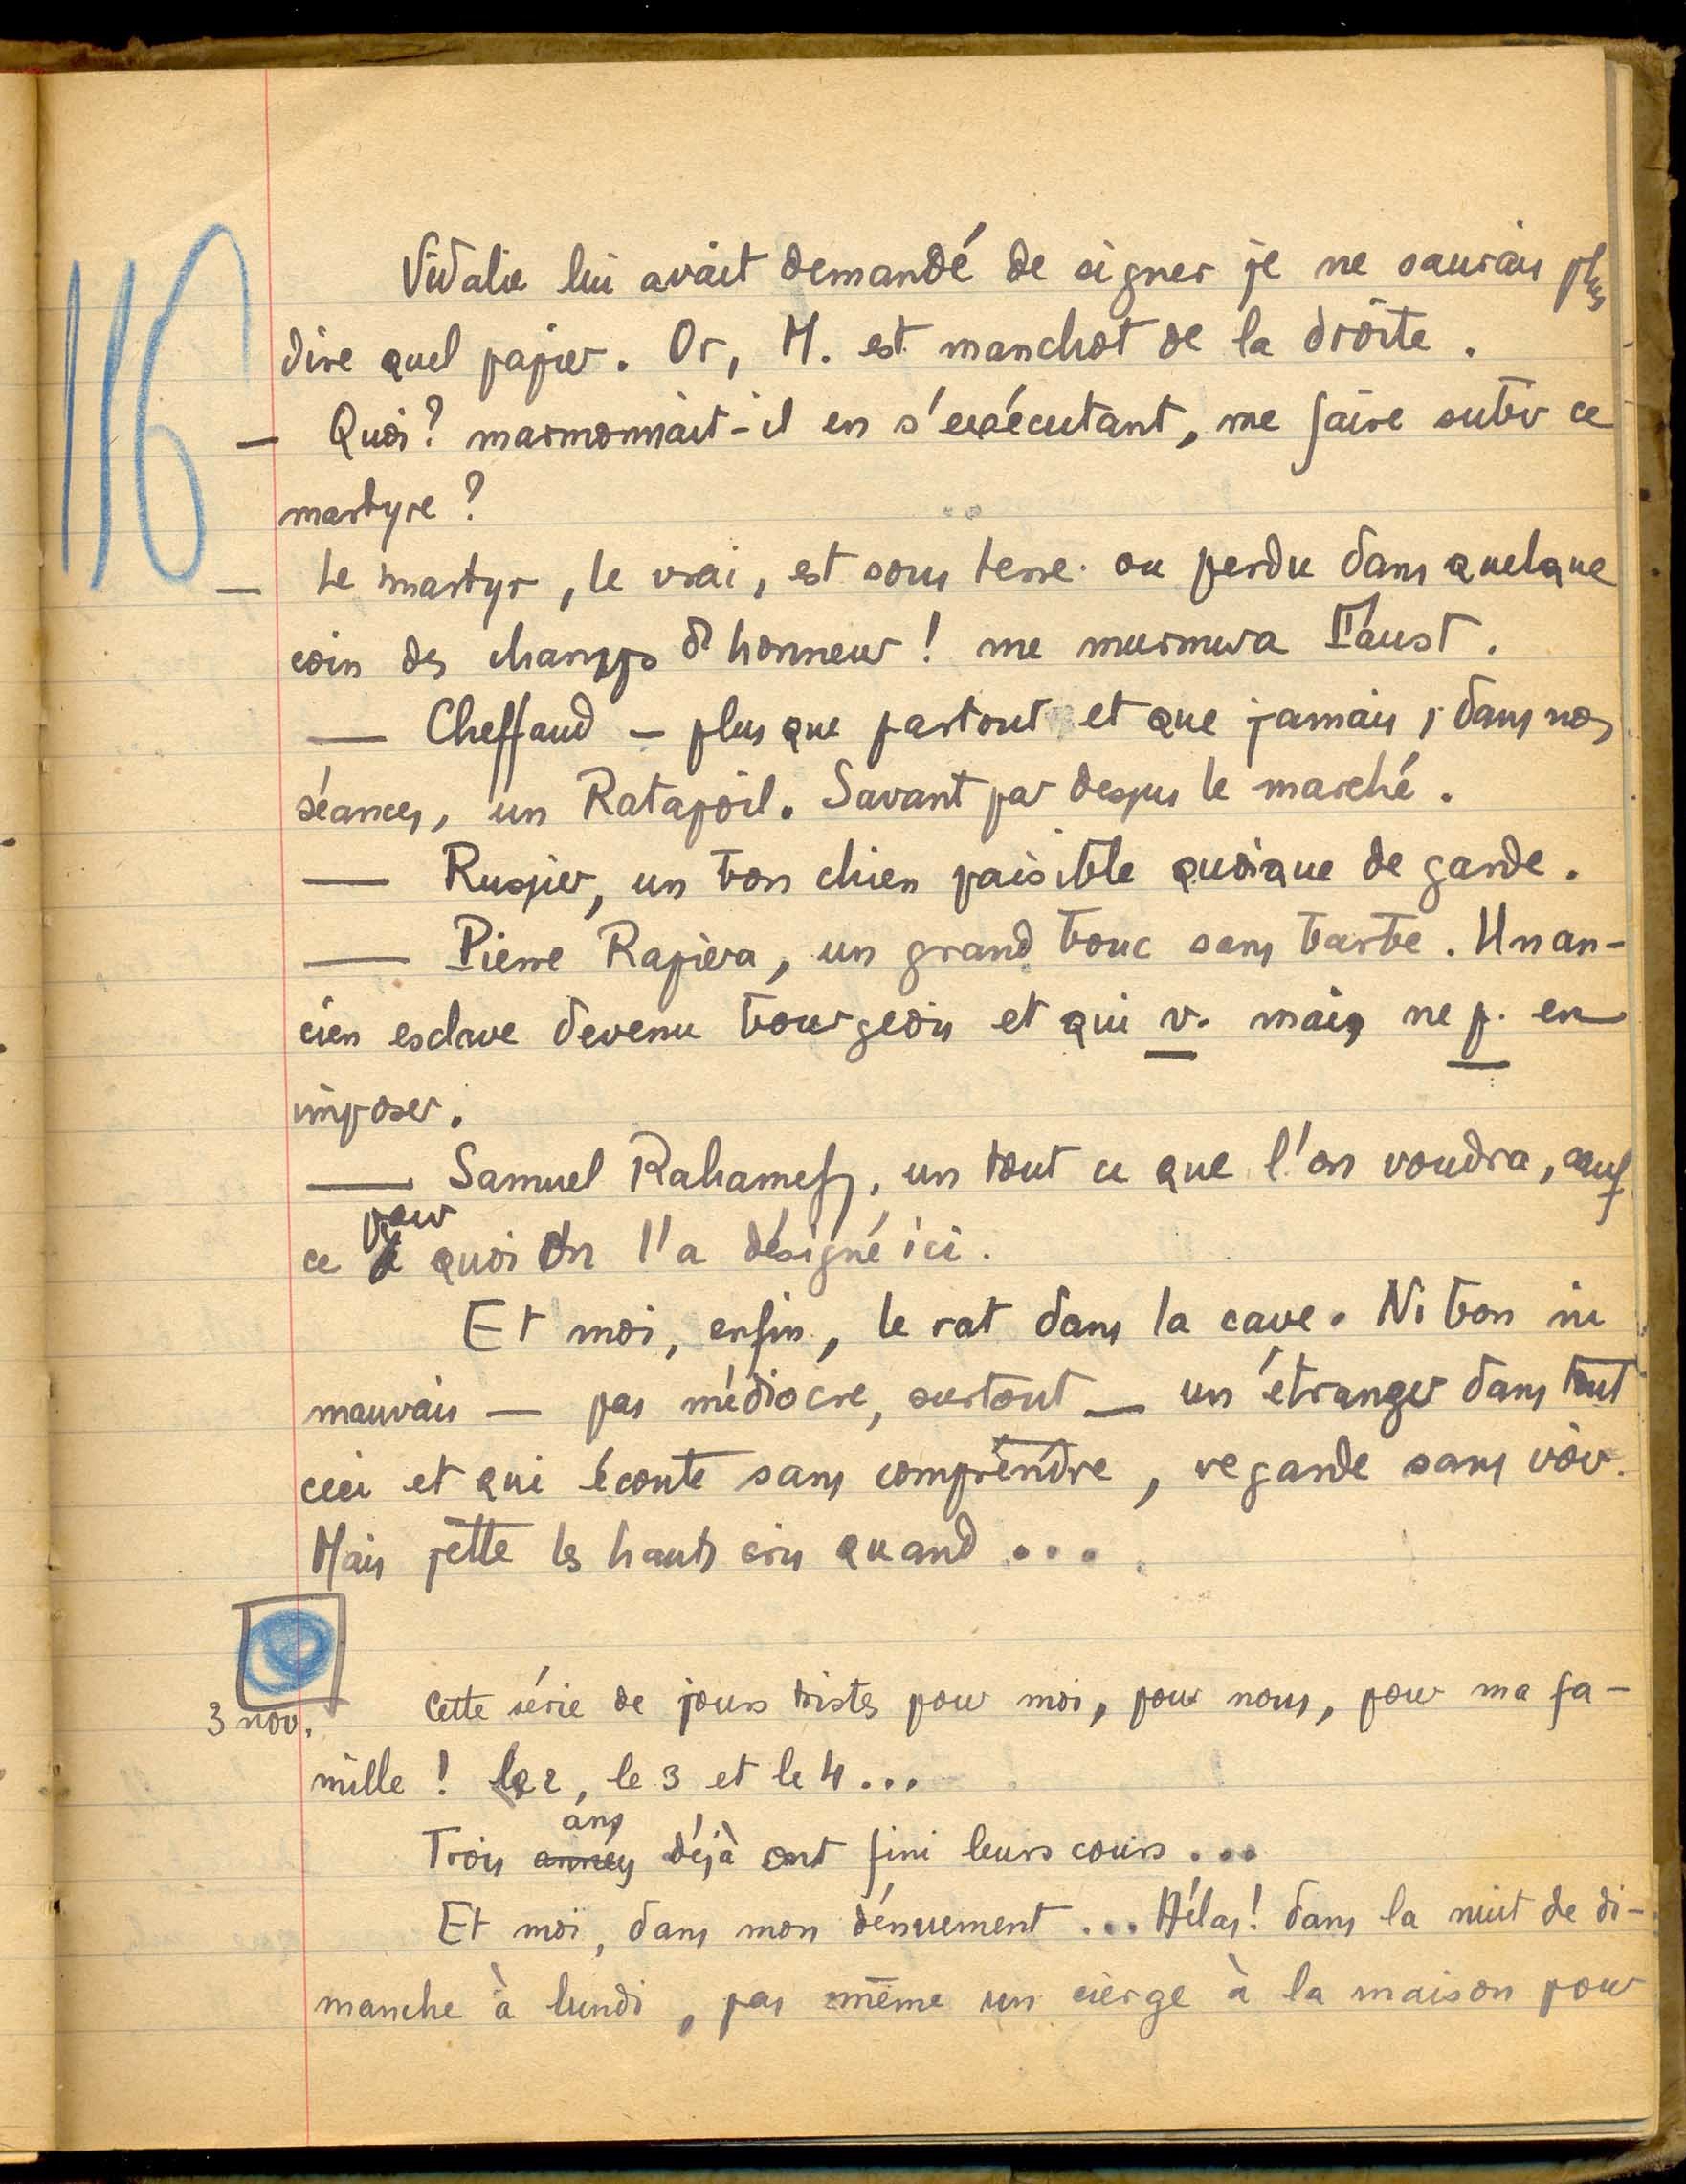 116
Vidalie lui avait demandé de signer je ne saurais plus
dire quel papier. Or, M. est manchot de la droite.
— Quoi? marmonnait-il en s'exécutant, me faire subir ce
martyre?
— Le martyr, le vrai, est sous terre ou perdu dans quelque
coin des champs d'honneur! me murmura Faust.
— Cheffaud – plus que partout et que jamais, dans nos
séances, un Ratapoil. Savant par dessus le marché.
—Ruspier, un bon chien paisible quoique de garde.
— Pierre Rapiera, un grand bouc sans barbe. Un an-
cien esclave devenu bourgeois et qui v. mais ne p. en
imposer.
— Samuel Rahamefy, un tout ce que l'on voudra, sauf
pour
ce à quoi on l'a désigné ici.
Et moi, enfin, le rat dans la cave. Ni bon ni
mauvais — pas médiocre, surtout — un étranger dans tout
ceci et qui écoute sans comprendre, regarde sans voir.
Mais jette les hauts cris quand ...
3 nov.
Cette série de jours tristes pour moi, pour nous, pour ma fa-
mille! le 2, le 3 et le 4...
ans
Trois années déjà ont fini leurs cours...
Et moi, dans mon dénuement ... Hélas! dans la nuit de di-
manche à lundi, pas même un cierge à la maison pour